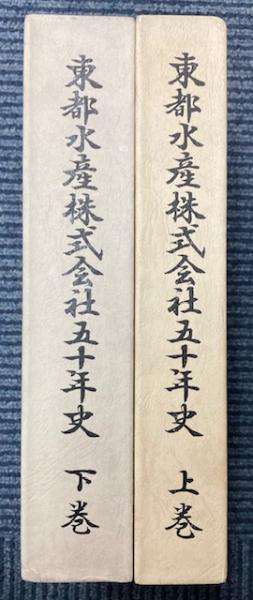 東都水産株式会社五十年史 上巻
東都水産株式会社五十年史 下巻